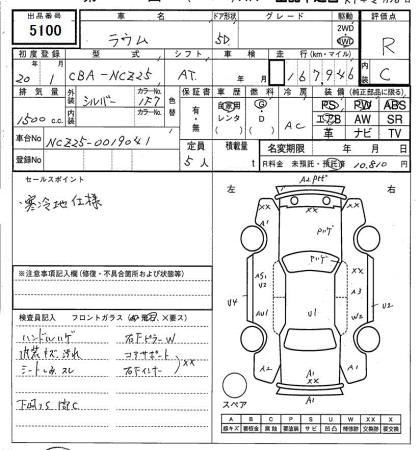 出品番号 車名 ドア形状 グレード 駆動 評価点
5100 ラウム 5D 2WD 4WD R
初度登録 型式 シフト 車検 走行(km・マイル) 内装
20 1 CBA-NCZ25 AT 167,946 C
排気量 外装 カラーNo. 色替 保証書 車歴 燃料 冷房 装備(純正部品に限る)
1500cc シルバー 1E7 有・無 自家用 レンタ G D AC PS PW ABS
内装 カラーNo. エアB AW SR
革 ナビ TV
車台No NCZ25-0019041 定員 積載量 名変期限 年 月 日
登録No 5人 t R料金 未預託・預託済 10,810円
セールスポイント
・寒冷地仕様
左 右
※注意事項記入欄(修復・不具合箇所および状態等)
検査員記入 フロントガラス(A・飛石・×要ス)
ハンドルハゲ 右Fピラー W
内装キズ、汚れ コアサポート
シートしみ、スレ 右Fインナー XX
下廻りS 腐C
XX XX
ハゲ
ハゲ
A1
A51
U2
A3
U4 AU1 U1 W2 U2
A2 A1
XX XX
A1
スペア
A B C P S U W XX X
線キズ 要板金 腐蝕 要塗装 サビ 凹凸 補修跡 交換跡 要交換